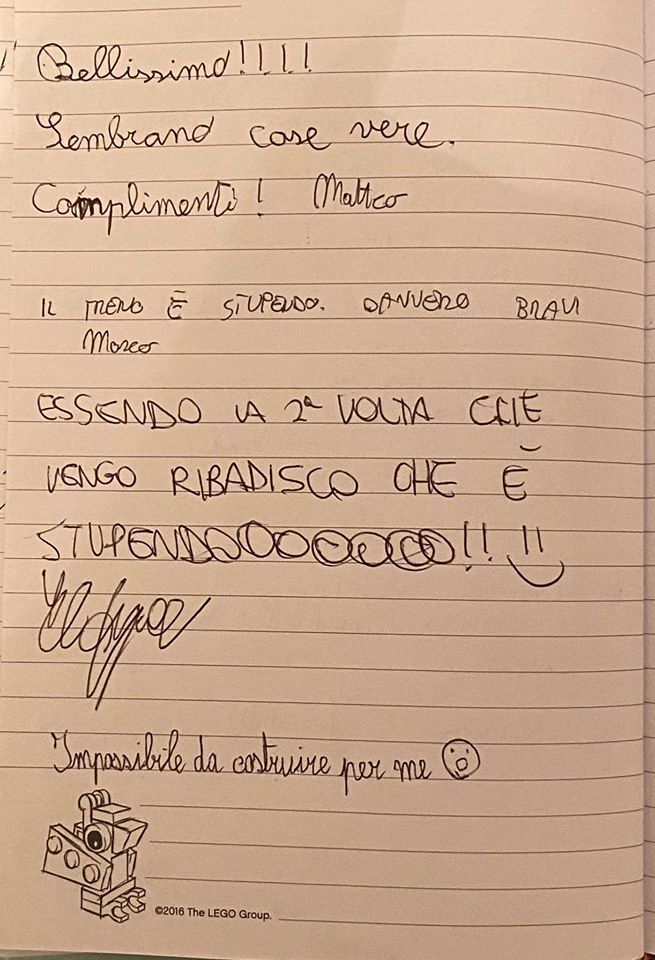 Bellissimo!!!!
Sembrano case vere.
Complimenti! Matteo
IL TRENO È STUPENDO. DAVVERO BRAVI
Marco
ESSENDO LA 2ª VOLTA CHE
VENGO RIBADISCO CHE È
STUPENDOOOOOOOO!! !!
Impossibile da costruire per me
©2016 The LEGO Group.